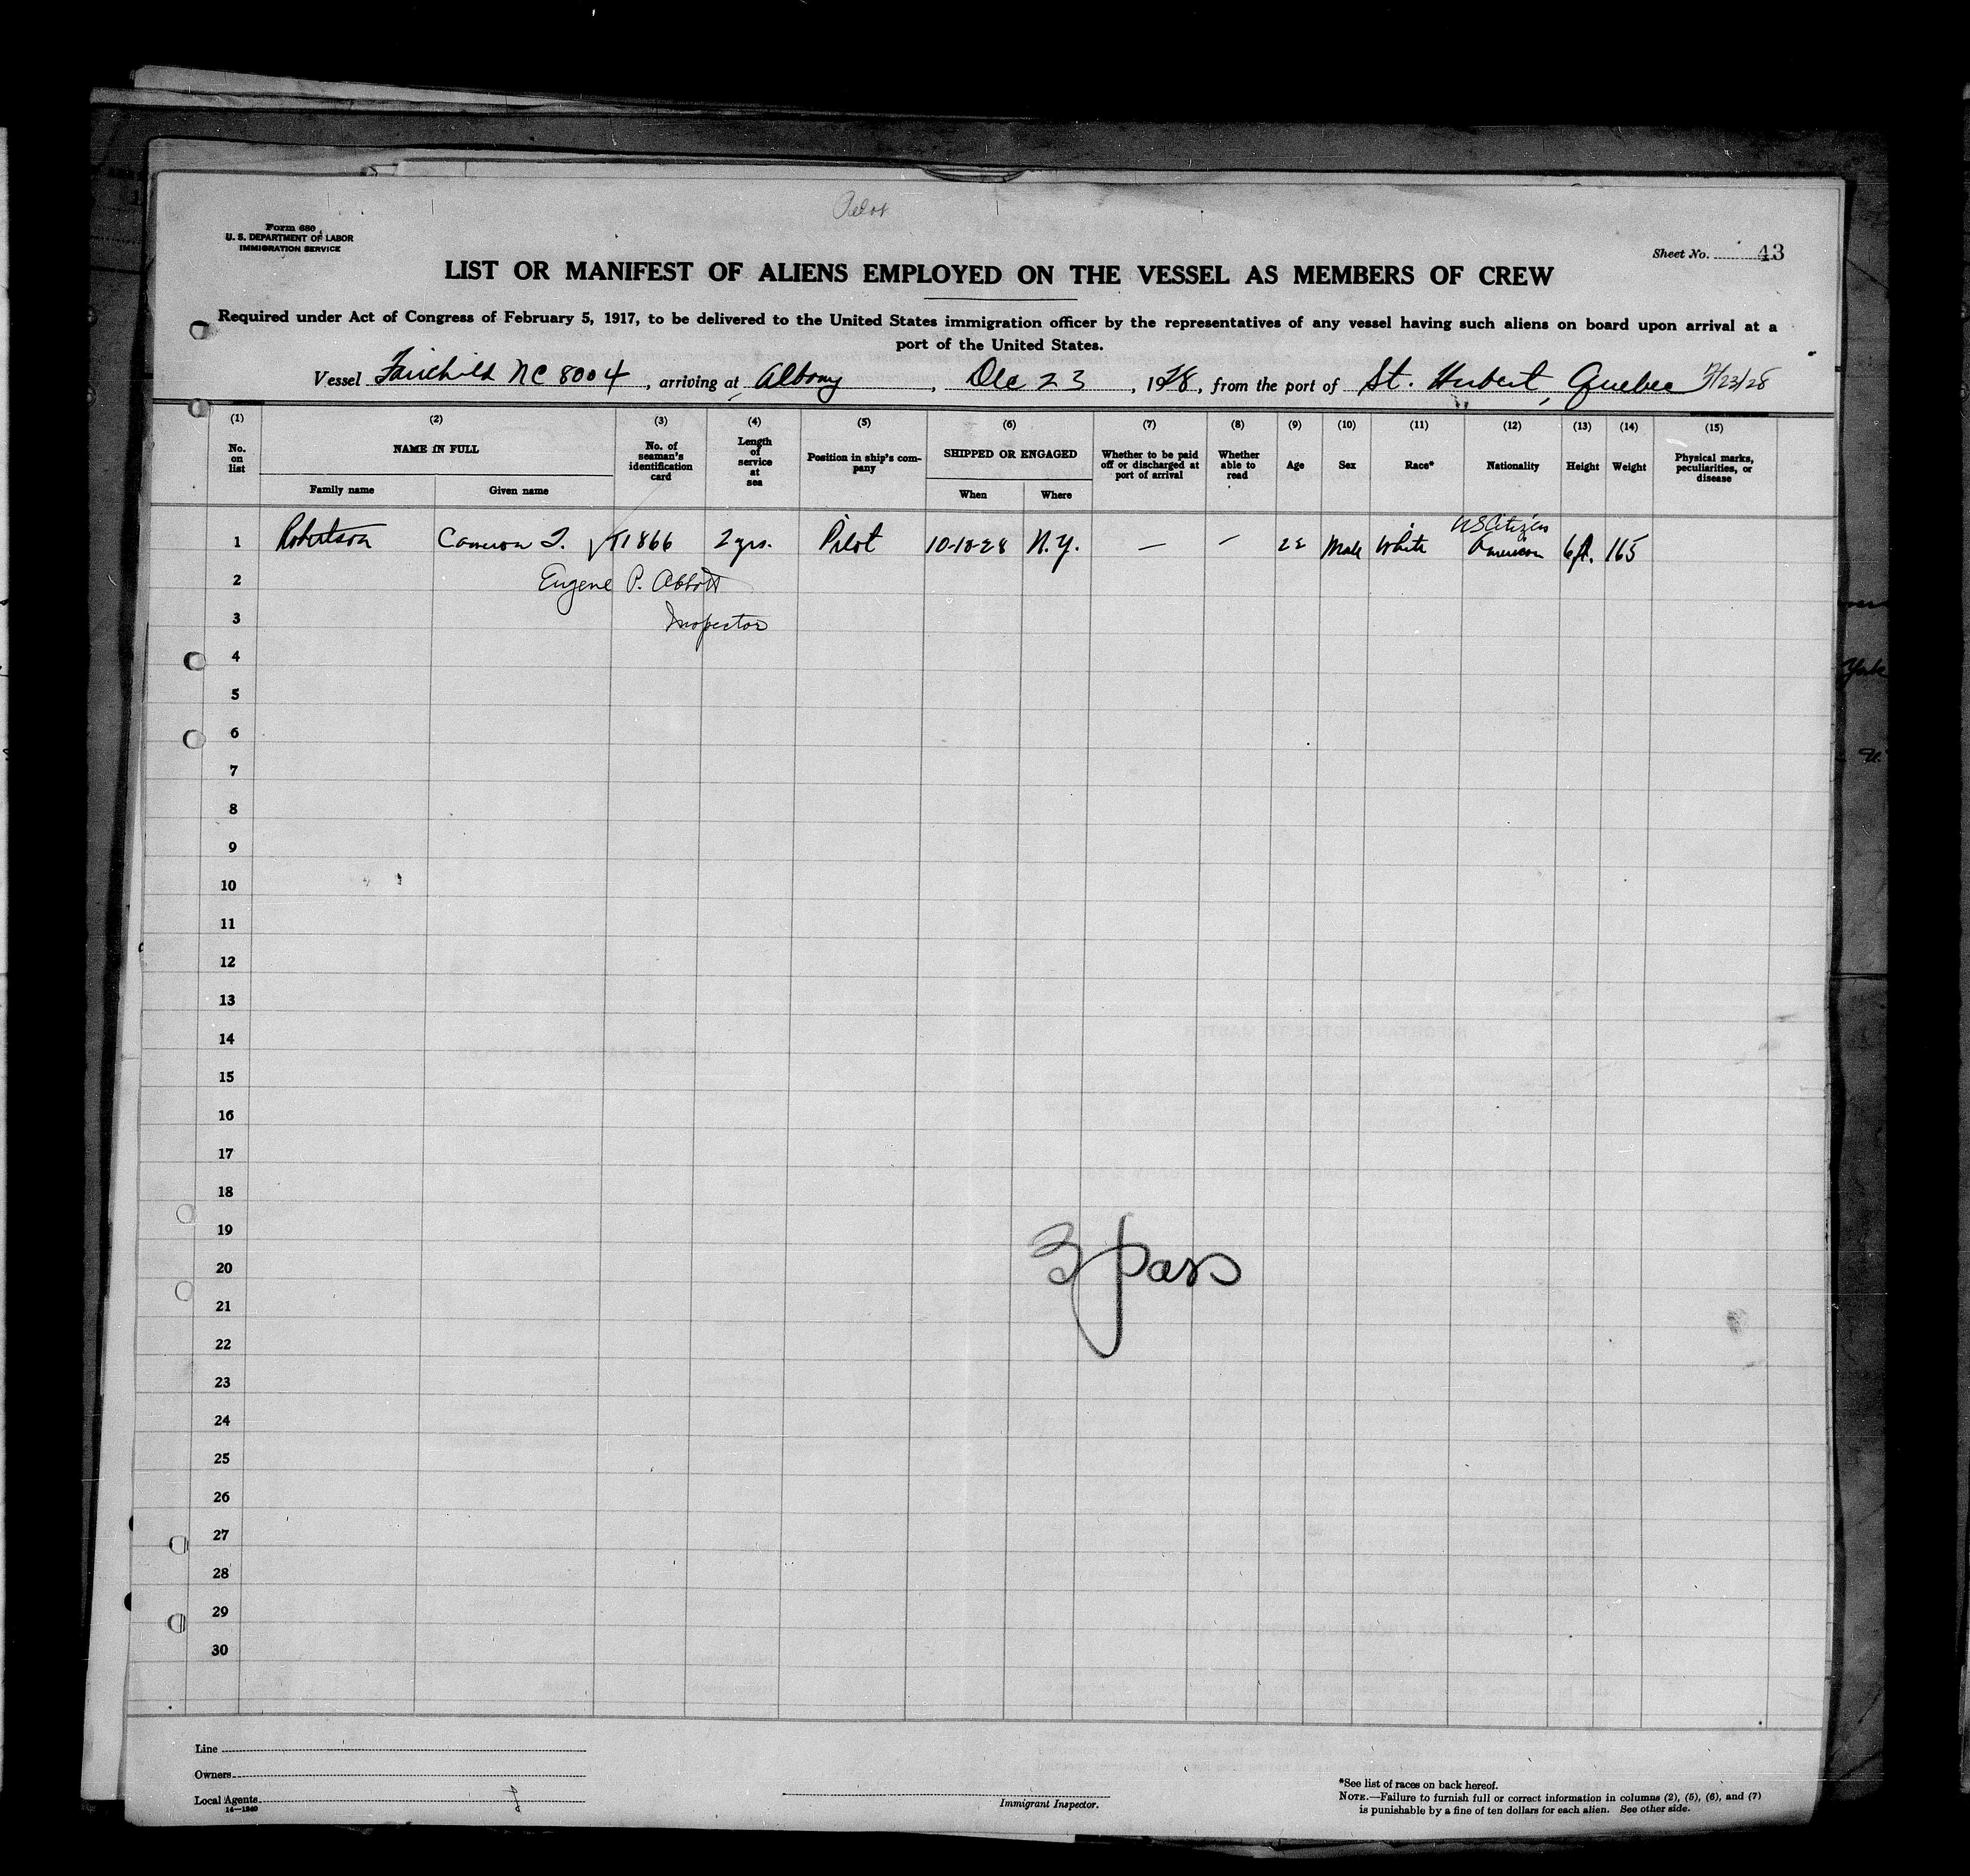 Pilot
Form 680
U. S. DEPARTMENT OF LABOR
IMMIGRATION SERVICE
Sheet No. 43
LIST OR MANIFEST OF ALIENS EMPLOYED ON THE VESSEL AS MEMBERS OF CREW
Required under Act of Congress of February 5, 1917, to be delivered to the United States immigration officer by the representatives of any vessel having such aliens on board upon arrival at a
port of the United States.
Vessel Fairchild NC 8004, arriving at Albany, Dec 23, 1928, from the port of St. Hubert, Quebec 12/23/28
(1) (2) (3) (4) (5) (6) (7) (8) (9) (10) (11) (12) (13) (14) (15)
No. on list NAME IN FULL Family name Given name No. of seaman's identification card Length of service at sea Position in ship's company SHIPPED OR ENGAGED When Where Whether to be paid off or discharged at port of arrival Whether able to read Age Sex Race* Nationality Height Weight Physical marks, peculiarities, or disease
US Citizen
1 Robertson Cameron T. √T1866 2 yrs. Pilot 10-10-28 N.Y. — — 28 Male White American 6 ft. 165
2 Eugene P. Abbott
3 Inspector
4
5
6
7
8
9
10
11
12
13
14
15
16
17
18
19
20 3 pass
21
22
23
24
25
26
27
28
29
30
Line
Owners
Local Agents
14—1240
Immigrant Inspector.
*See list of races on back hereof.
NOTE.—Failure to furnish full or correct information in columns (2), (5), (6), and (7)
is punishable by a fine of ten dollars for each alien. See other side.